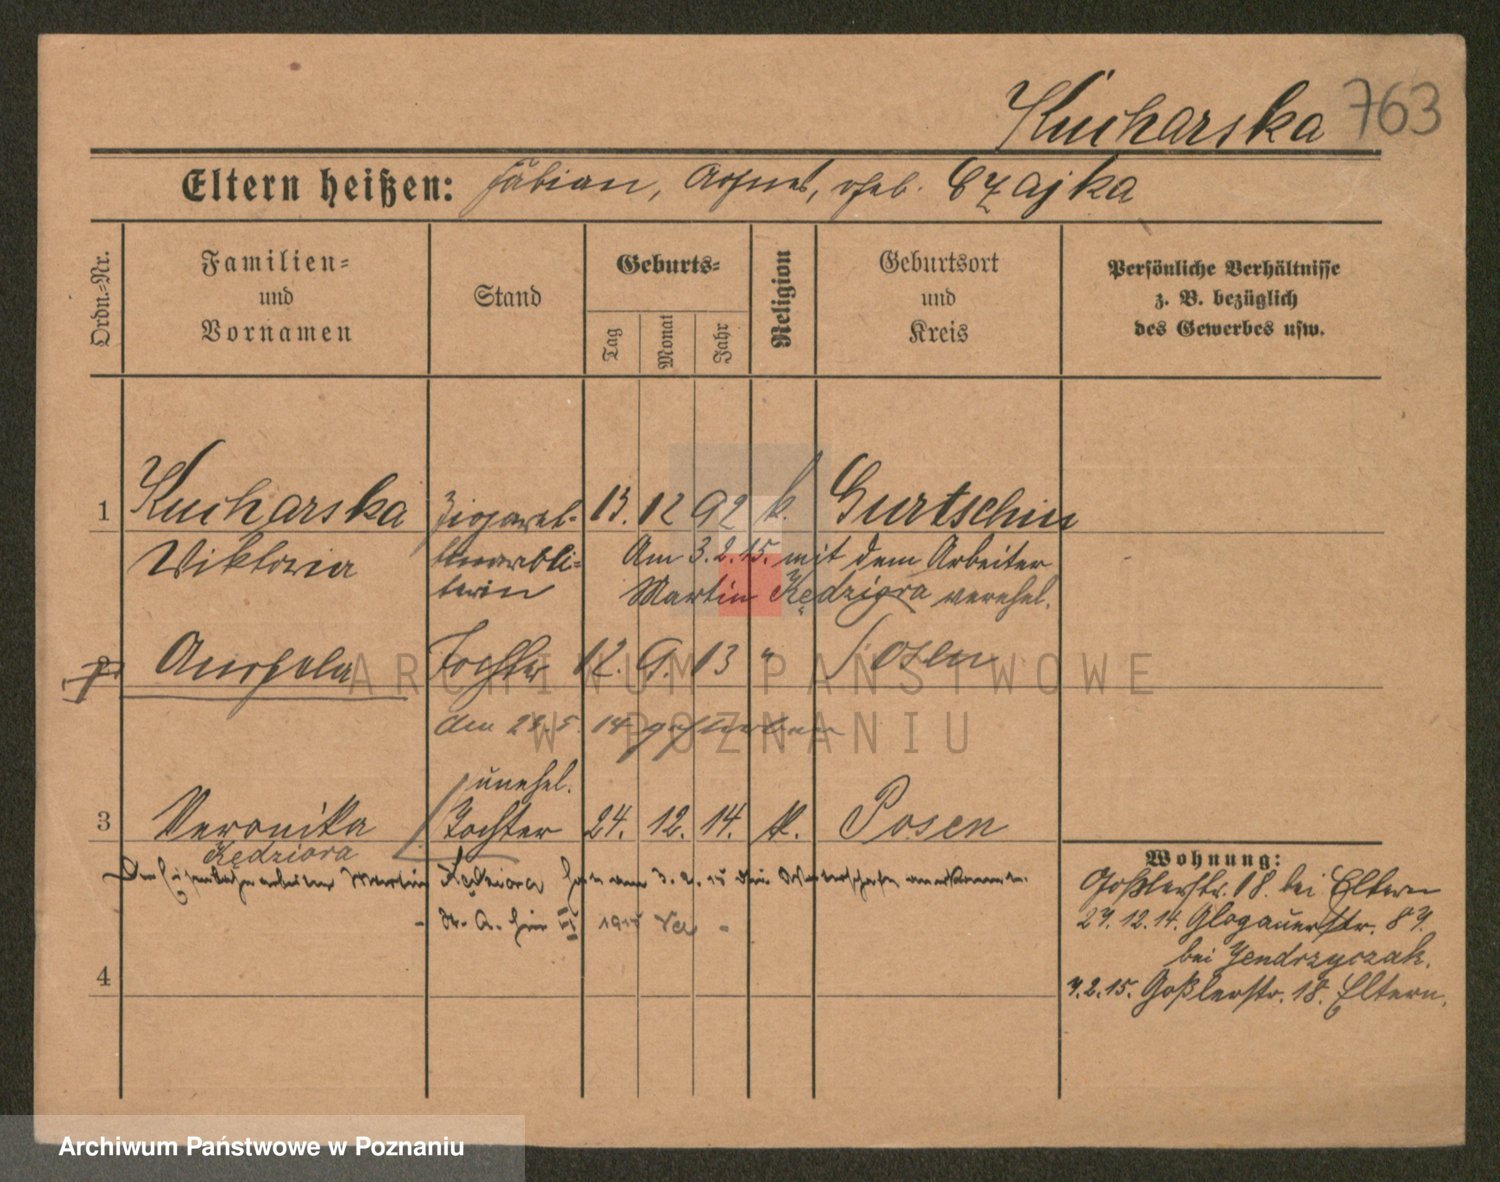 Kucharska 763
Eltern heißen: Fabian, Agnes, geb. Czajka
Ordn.-Nr.
Familien-
und
Vornamen
Stand
Geburts-
Tag
Monat
Jahr
Religion
Geburtsort
und
Kreis
Persönliche Verhältnisse
z. B. bezüglich
des Gewerbes usw.
1 Kucharska Zigaret- 13. 12 92 k. Gurtschin
Wiktoria
terin
Am 3.2.15. mit dem Arbeiter
Martin Kędziora verehel.
Angela Tochter 12. 9. 13 " Posen
am 28.5. 14 gestorben
unehel.
3 Veronika Tochter 24. 12. 14. k. Posen
Kędziora
Der Eisenbahnarbeiter Martin Kędziora hat am 3.2.15 die Vaterschaft anerkannt.
St. A. hier III 1915
4
Wohnung:
Goßlerstr. 18. bei Eltern
27.12.14. Glogauerstr. 87.
bei Jendrzyczak.
7.2.15. Goßlerstr. 18. Eltern.
ARCHIWUM PAŃSTWOWE
W POZNANIU
Archiwum Państwowe w Poznaniu